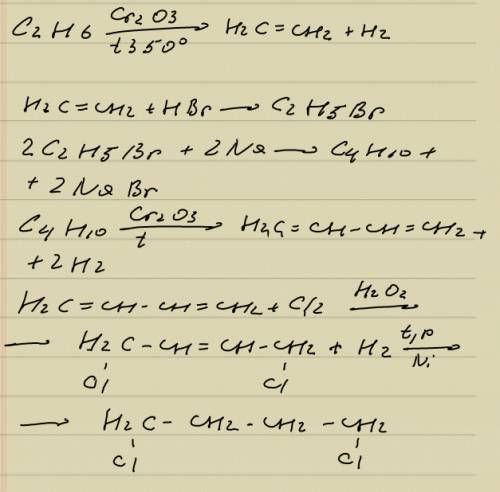 C2H6 Cr2O3 t350° → H2C=CH2 + H2
H2C=CH2 + HBr → C2H5Br
2C2H5Br + 2Na → C4H10 +
+ 2NaBr
C4H10 Cr2O3 t → H2C=CH-CH=CH2 +
+ 2H2
H2C=CH-CH=CH2 + Cl2 H2O2 →
→ H2C-CH=CH-CH2 + H2 t,p Ni →
Cl Cl
→ H2C-CH2-CH2-CH2
Cl Cl